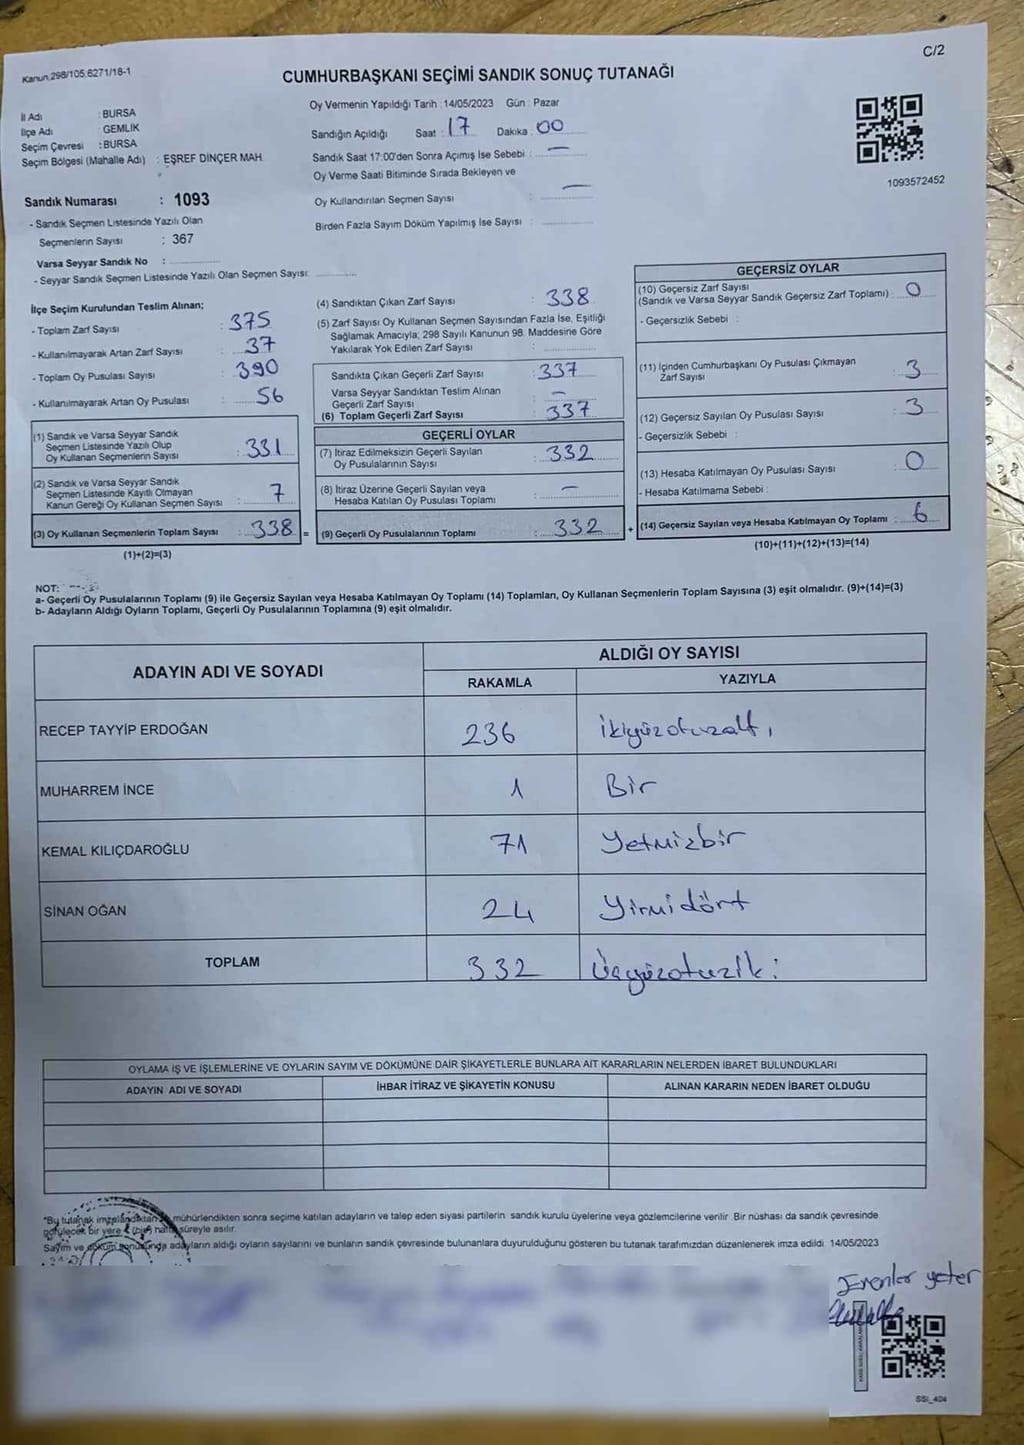 Kanun.298/105.6271/18-1
C/2
CUMHURBAŞKANI SEÇİMİ SANDIK SONUÇ TUTANAĞI
İl Adı : BURSA
İlçe Adı : GEMLİK
Seçim Çevresi : BURSA
Seçim Bölgesi (Mahalle Adı) : EŞREF DİNÇER MAH.
Sandık Numarası : 1093
- Sandık Seçmen Listesinde Yazılı Olan
Seçmenlerin Sayısı : 367
Varsa Seyyar Sandık No :
- Seyyar Sandık Seçmen Listesinde Yazılı Olan Seçmen Sayısı:
Oy Vermenin Yapıldığı Tarih : 14/05/2023 Gün : Pazar
Sandığın Açıldığı Saat : 17 Dakika : 00
Sandık Saat 17:00'den Sonra Açmış İse Sebebi : —
Oy Verme Saati Bitiminde Sırada Bekleyen ve
Oy Kullandırılan Seçmen Sayısı : —
Birden Fazla Sayım Döküm Yapılmış İse Sayısı :
1093572452
İlçe Seçim Kurulundan Teslim Alınan;
- Toplam Zarf Sayısı : 375
- Kullanılmayarak Artan Zarf Sayısı : 37
- Toplam Oy Pusulası Sayısı : 390
- Kullanılmayarak Artan Oy Pusulası : 56
(1) Sandık ve Varsa Seyyar Sandık
Seçmen Listesinde Yazılı Olup
Oy Kullanan Seçmenlerin Sayısı : 331
(2) Sandık ve Varsa Seyyar Sandık
Seçmen Listesinde Kayıtlı Olmayan
Kanun Gereği Oy Kullanan Seçmen Sayısı : 7
(3) Oy Kullanan Seçmenlerin Toplam Sayısı : 338 =
(1)+(2)=(3)
(4) Sandıktan Çıkan Zarf Sayısı : 338
(5) Zarf Sayısı Oy Kullanan Seçmen Sayısından Fazla İse, Eşitliği
Sağlamak Amacıyla; 298 Sayılı Kanunun 98. Maddesine Göre
Yakılarak Yok Edilen Zarf Sayısı :
Sandıkta Çıkan Geçerli Zarf Sayısı : 337
Varsa Seyyar Sandıktan Teslim Alınan
Geçerli Zarf Sayısı : —
(6) Toplam Geçerli Zarf Sayısı : 337
GEÇERLİ OYLAR
(7) İtiraz Edilmeksizin Geçerli Sayılan
Oy Pusulalarının Sayısı : 332
(8) İtiraz Üzerine Geçerli Sayılan veya
Hesaba Katılan Oy Pusulası Toplamı : —
(9) Geçerli Oy Pusulalarının Toplamı : 332 +
GEÇERSİZ OYLAR
(10) Geçersiz Zarf Sayısı
(Sandık ve Varsa Seyyar Sandık Geçersiz Zarf Toplamı) : 0
- Geçersizlik Sebebi :
(11) İçinden Cumhurbaşkanı Oy Pusulası Çıkmayan
Zarf Sayısı : 3
(12) Geçersiz Sayılan Oy Pusulası Sayısı : 3
- Geçersizlik Sebebi :
(13) Hesaba Katılmayan Oy Pusulası Sayısı : 0
- Hesaba Katılmama Sebebi :
(14) Geçersiz Sayılan veya Hesaba Katılmayan Oy Toplamı : 6
(10)+(11)+(12)+(13)=(14)
NOT:
a- Geçerli Oy Pusulalarının Toplamı (9) ile Geçersiz Sayılan veya Hesaba Katılmayan Oy Toplamı (14) Toplamları, Oy Kullanan Seçmenlerin Toplam Sayısına (3) eşit olmalıdır. (9)+(14)=(3)
b- Adayların Aldığı Oyların Toplamı, Geçerli Oy Pusulalarının Toplamına (9) eşit olmalıdır.
ADAYIN ADI VE SOYADI
ALDIĞI OY SAYISI
RAKAMLA YAZIYLA
RECEP TAYYİP ERDOĞAN 236 ikiyüzotuzaltı
MUHARREM İNCE 1 Bir
KEMAL KILIÇDAROĞLU 71 Yetmizbir
SİNAN OĞAN 24 Yirmidört
TOPLAM 332 Üçyüzotuziki
OYLAMA İŞ VE İŞLEMLERİNE VE OYLARIN SAYIM VE DÖKÜMÜNE DAİR ŞİKAYETLERLE BUNLARA AİT KARARLARIN NELERDEN İBARET BULUNDUKLARI
ADAYIN ADI VE SOYADI İHBAR İTİRAZ VE ŞİKAYETİN KONUSU ALINAN KARARIN NEDEN İBARET OLDUĞU
*Bu tutanak imzalandıktan ve mühürlendikten sonra seçime katılan adayların ve talep eden siyasi partilerin sandık kurulu üyelerine veya gözlemcilerine verilir. Bir nüshası da sandık çevresinde
görülecek bir yere 1 (bir) hafta süreyle asılır.
Sayım ve döküm sonucunda adayların aldığı oyların sayılarını ve bunların sandık çevresinde bulunanlara duyurulduğunu gösteren bu tutanak tarafımızdan düzenlenerek imza edildi. 14/05/2023
Erenler yeter
SSI_404